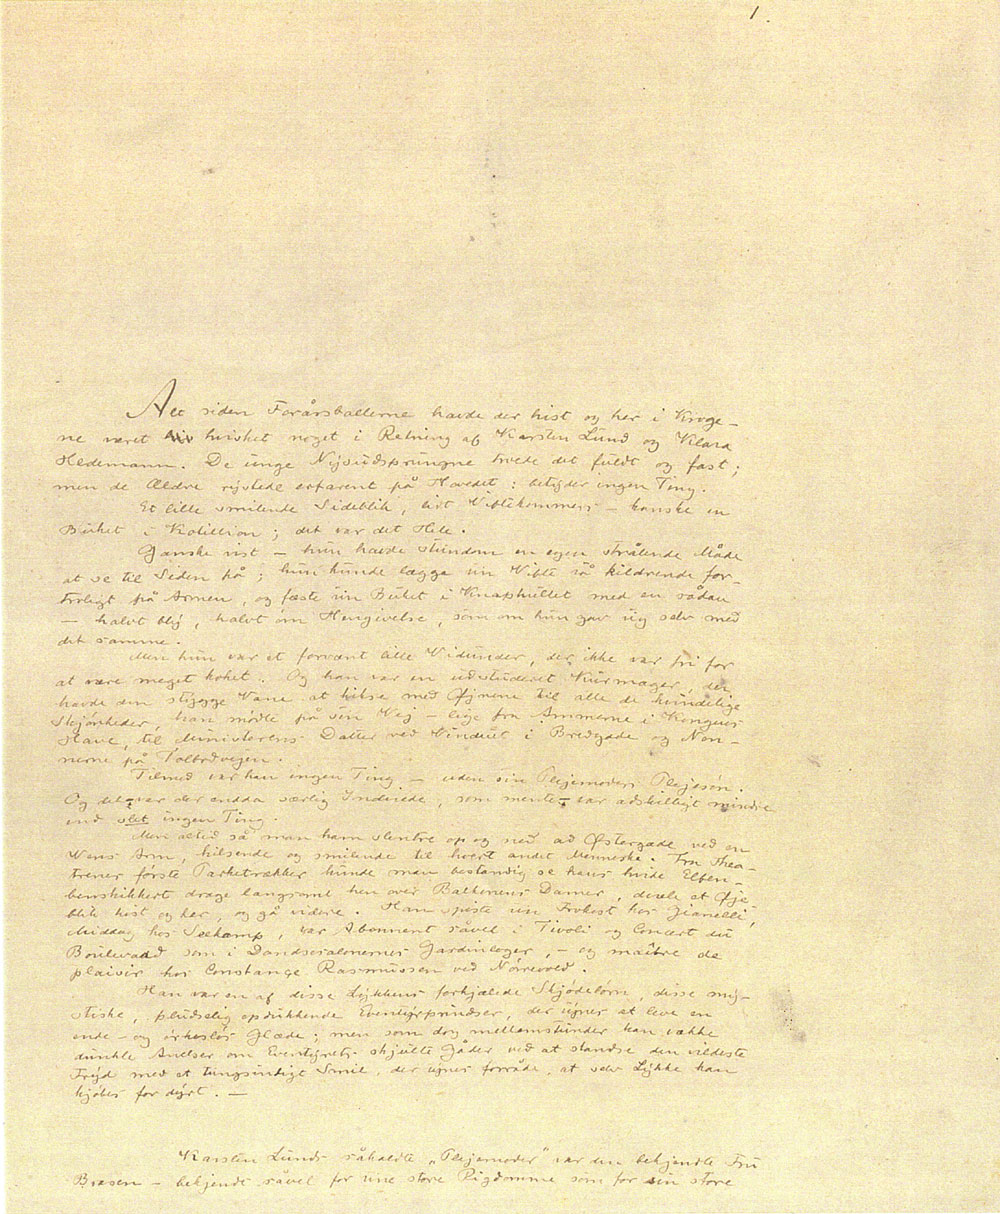 1.
Alt siden Forårsballerne havde der hist og her i Kroge-
ne været hvisket noget i Retning af Karsten Lund og Klara
Hedemann. De unge Nysudsprungne troede det fuldt og fast;
men de Ældre rystede erfarent på Hovedet: betyder ingen Ting.
Et lille smilende Sideblik, lidt Viftekommers – kanske en
Buket i Kotillion; det var det Hele.
Ganske vist – hun havde stundom en egen strålende Måde
at se til Siden på; hun kunde lægge sin Vifte så kildrende for-
troligt på Armen, og fæste sin Buket i Knaphullet med en sådan
– halvt bly, halvt øm Hengivelse, som om hun gav sig selv med
det samme.
Men hun var et forvænt lille Vidunder, der ikke var fri for
at være meget koket. Og han var en udstuderet Kurmager, der
havde den stygge Vane at hilse med Øjnene til alle de kvindelige
Skjönheder, han mödte på sin Vej – lige fra Ammerne i Kongens
Have, til Ministerens Datter ved Vinduet i Bredgade og Non-
nerne på Toldbodvejen.
Tilmed var han ingen Ting – uden sin Plejemoders Plejesön.
Og det var der endda særlig Indviede, som mente var adskilligt mindre
end slet ingen Ting.
Men altid så man ham slentre op og ned ad Østergade ved en
Vens Arm, hilsende og smilende til hvert andet Menneske. Fra Thea-
trenes förste Parketrækker kunde man bestandig se hans hvide Elfen-
benskikkert drage langsomt hen over Balkonens Damer, dvæle et Øje-
blik hist og her, og gå videre. Han spiste sin Frokost hos Gianelli,
Middag hos Seekamp, var Abonnent såvel i Tivoli og Concert du
Boulevard som i Dandsesalonernes Gardinloger, – og maître de
plaisir hos Constance Rasmussen ved Nörrevold.
Han var en af disse Lykkens forkjælede Skjödebörn, disse my-
stiske, pludselig opdukkende Eventyrprindser, der synes at leve en
ende- og örkeslös Glæde; men som dog mellemstunder kan vække
dunkle Anelser om Eventyrets skjulte Gåder ved at standse den vildeste
Fryd med et tungsindigt Smil, der synes forråde, at selv Lykke kan
kjöbes for dyrt. –
Karsten Lunds såkaldte „Plejemoder” var den bekjendte Fru
Brasen – bekjendt såvel for sine store Rigdomme som for sin store